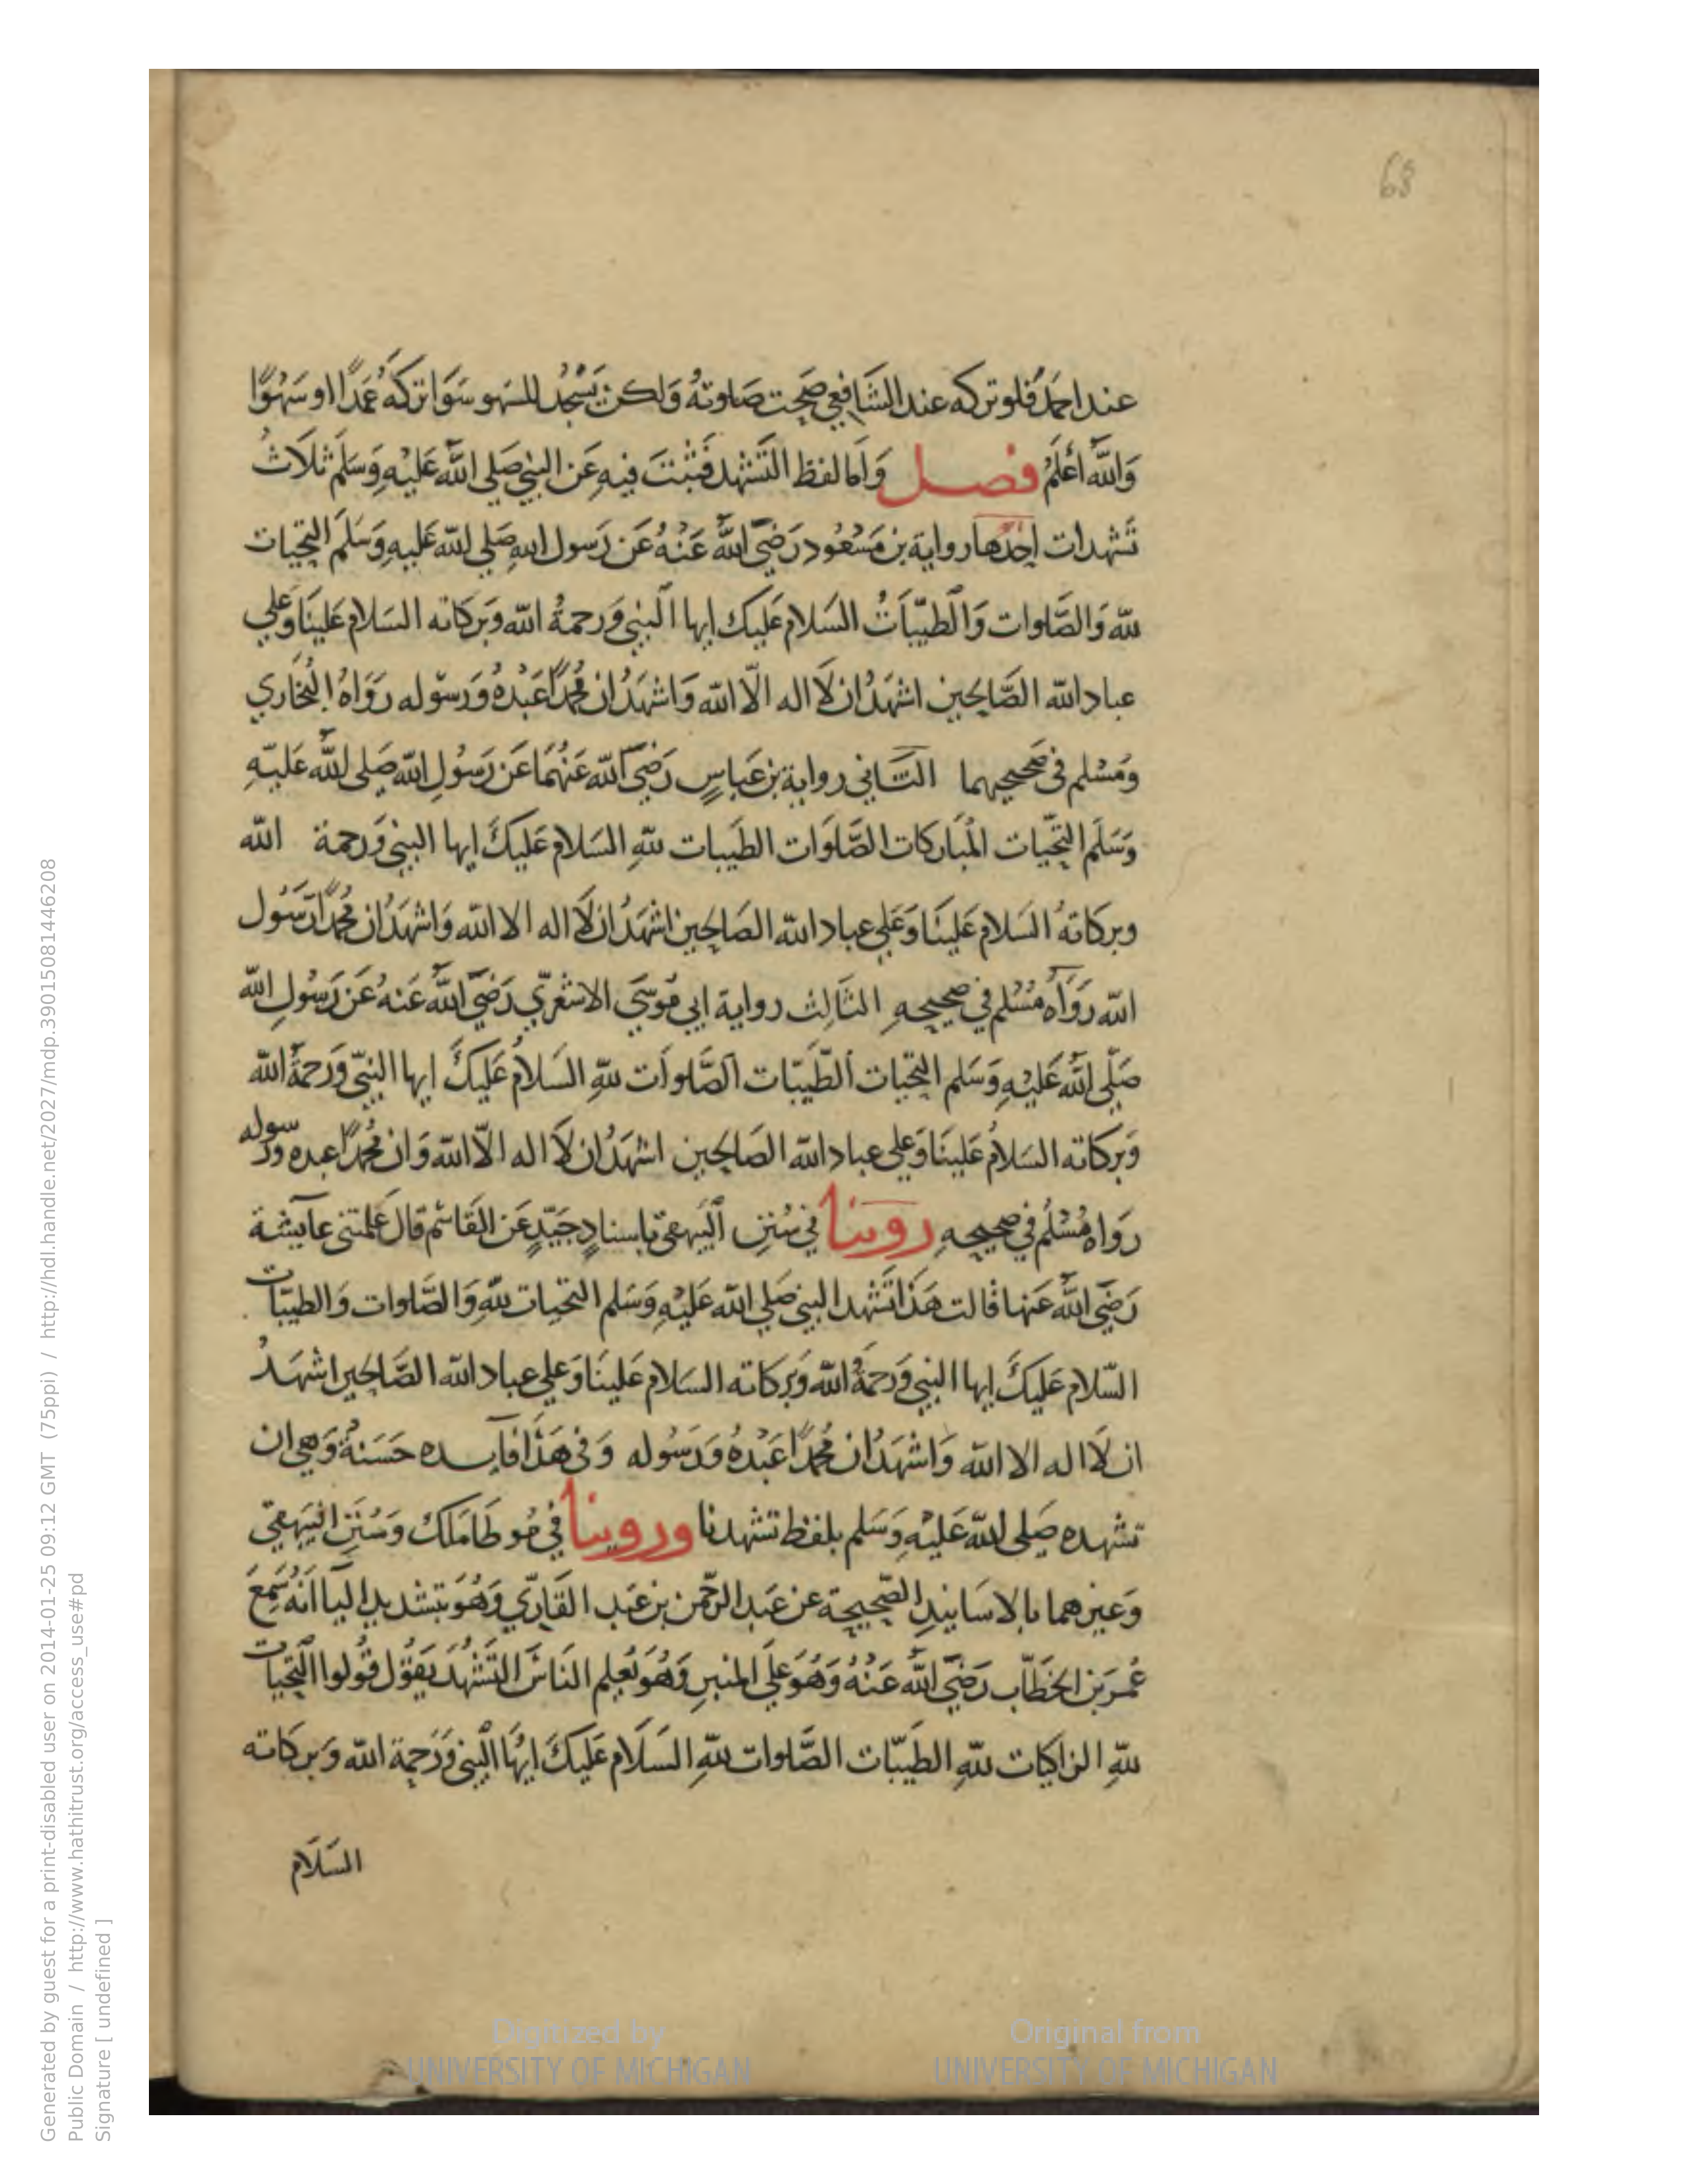 68
عند احمَد فلو تركه عند الشَافعي صَحت صَلوتهُ وَلكن يَسْجُد للسَهو سَوَا تركهُ عَمَدًا او سَهْوًا
وَاللّه اَعْلَمُ فصل وَاَما لفظ التَشَهد فَثَبْتَ فيهِ عَن النبيّ صَلي اللّه عَليْهِ وَسَلم ثلَاثُ
تَشهدات اِحْدُها رواية بن مَسْعُود رَضيَ اللّهُ عَنْهُ عَن رَسول اللهِ صَلي للّه عَليهِ وَسَلم التحيات
للّه وَالصَّلوات وَالطيّبَاتُ السَلام عَليك ايها النبي وَرحمةُ اللّه وَبركاته السَلام عَلينَا وَعلي
عباد اللّه الصَّالحين اشهَدُ ان لَا اله الّا اللّه وَاشهَدُ ان مُحمّدًا عَبْدهُ وَرسوله رَوَاهُ البُخَاري
وَمُسْلم في صَحيحيهما الثَاني رواية بن عَباسٍ رَضيَ اللّه عَنْهُمَا عَن رَسُولِ اللّه صَلي للّه عَليْهِ
وَسَلَم التَحيّات المُبَاركات الصَّلوَات الطَيبات للّهِ السَلام عَليكَ ايها النبي وَرحمة اللّه
وبركاتهُ السَلام عَلينَا وَعَلي عباد اللّه الصَالحين اشهَدُ ان لَا اله الا اللّه وَاشهَدُ ان مُحمّدًا رَسُول
اللّه رَوَاه مُسْلم في صَحيحهِ الثَالِث رواية ابي مُوسَي الاشعَرّي رَضيَ اللّهُ عَنهُ عَن رَسُولِ اللّه
صَلّي اللّه عَليْهِ وَسَلم التحيات الطَّيبَات الصَّلواَت للّهِ السَلامُ عَليكَ ايها النبيّ وَرَحمَةُ اللّه
وَبركاته السَلامُ عَلينَا وَعلي عباد اللّه الصَالحين اشهَدُ ان لَا اله الّا اللّه وَان مُحمّدًا عبده ورسوله
رَوَاه مُسْلُم في صَحيحهِ روينا في سُنَنِ البَيهقي باسنادٍ جَيّدٍ عَن القَاسم قال عَلمتني عايشة
رَضيَ اللّهُ عَنها قالت هَذَا تَشَهد النبي صَلي اللّه عَليْهِ وَسَلم التحيات للّهِ وَالصَّلوات وَالطيبَّات
السّلام عَليكَ ايها النبي وَرَحمَةُ اللّه وَبركاته السَلام عَلينَا وَعلي عباد اللّه الصَّالحين اشهَدُ
ان لَا اله الا اللّه وَاشهَدُ ان مُحمّدًا عَبْدهُ وَرَسُوله وَفي هَذَا فايده حَسَنةٌ وَهي ان
تشهده صَلي للّه عَليْهِ وَسَلم بلفظ تشهدنا وروينا في مُوطَا مَلك وَسُنَنِ البَيهقي
وَغيرهما بالاسَانيدِ الصّحيحة عن عَبد الرَحّمن بن عَبدِ القَاريّ وَهُوَ بتشديد اليَا انهُ سَمِعَ
عُمرَ بن الخَطّاب رَضيَ اللّهُ عَنْهُ وَهُوَ عَلَي المنبرِ وَهُوَ يُعلِم النَاسَ التَشَهُدَ يَقوُل قُولوا التَحيات
للّهِ الزاكيات للّهِ الطَيبّات الصَّلوات للّهِ السَلَام عَليكَ ايهَا النبي وَرَحمة اللّه وَبركاته
السَلَام
Digitized by
UNIVERSITY OF MICHIGAN
Original from
UNIVERSITY OF MICHIGAN
Generated by guest for a print-disabled user on 2014-01-25 09:12 GMT (75ppi) / http://hdl.handle.net/2027/mdp.39015081446208
Public Domain / http://www.hathitrust.org/access_use#pd
Signature [ undefined ]